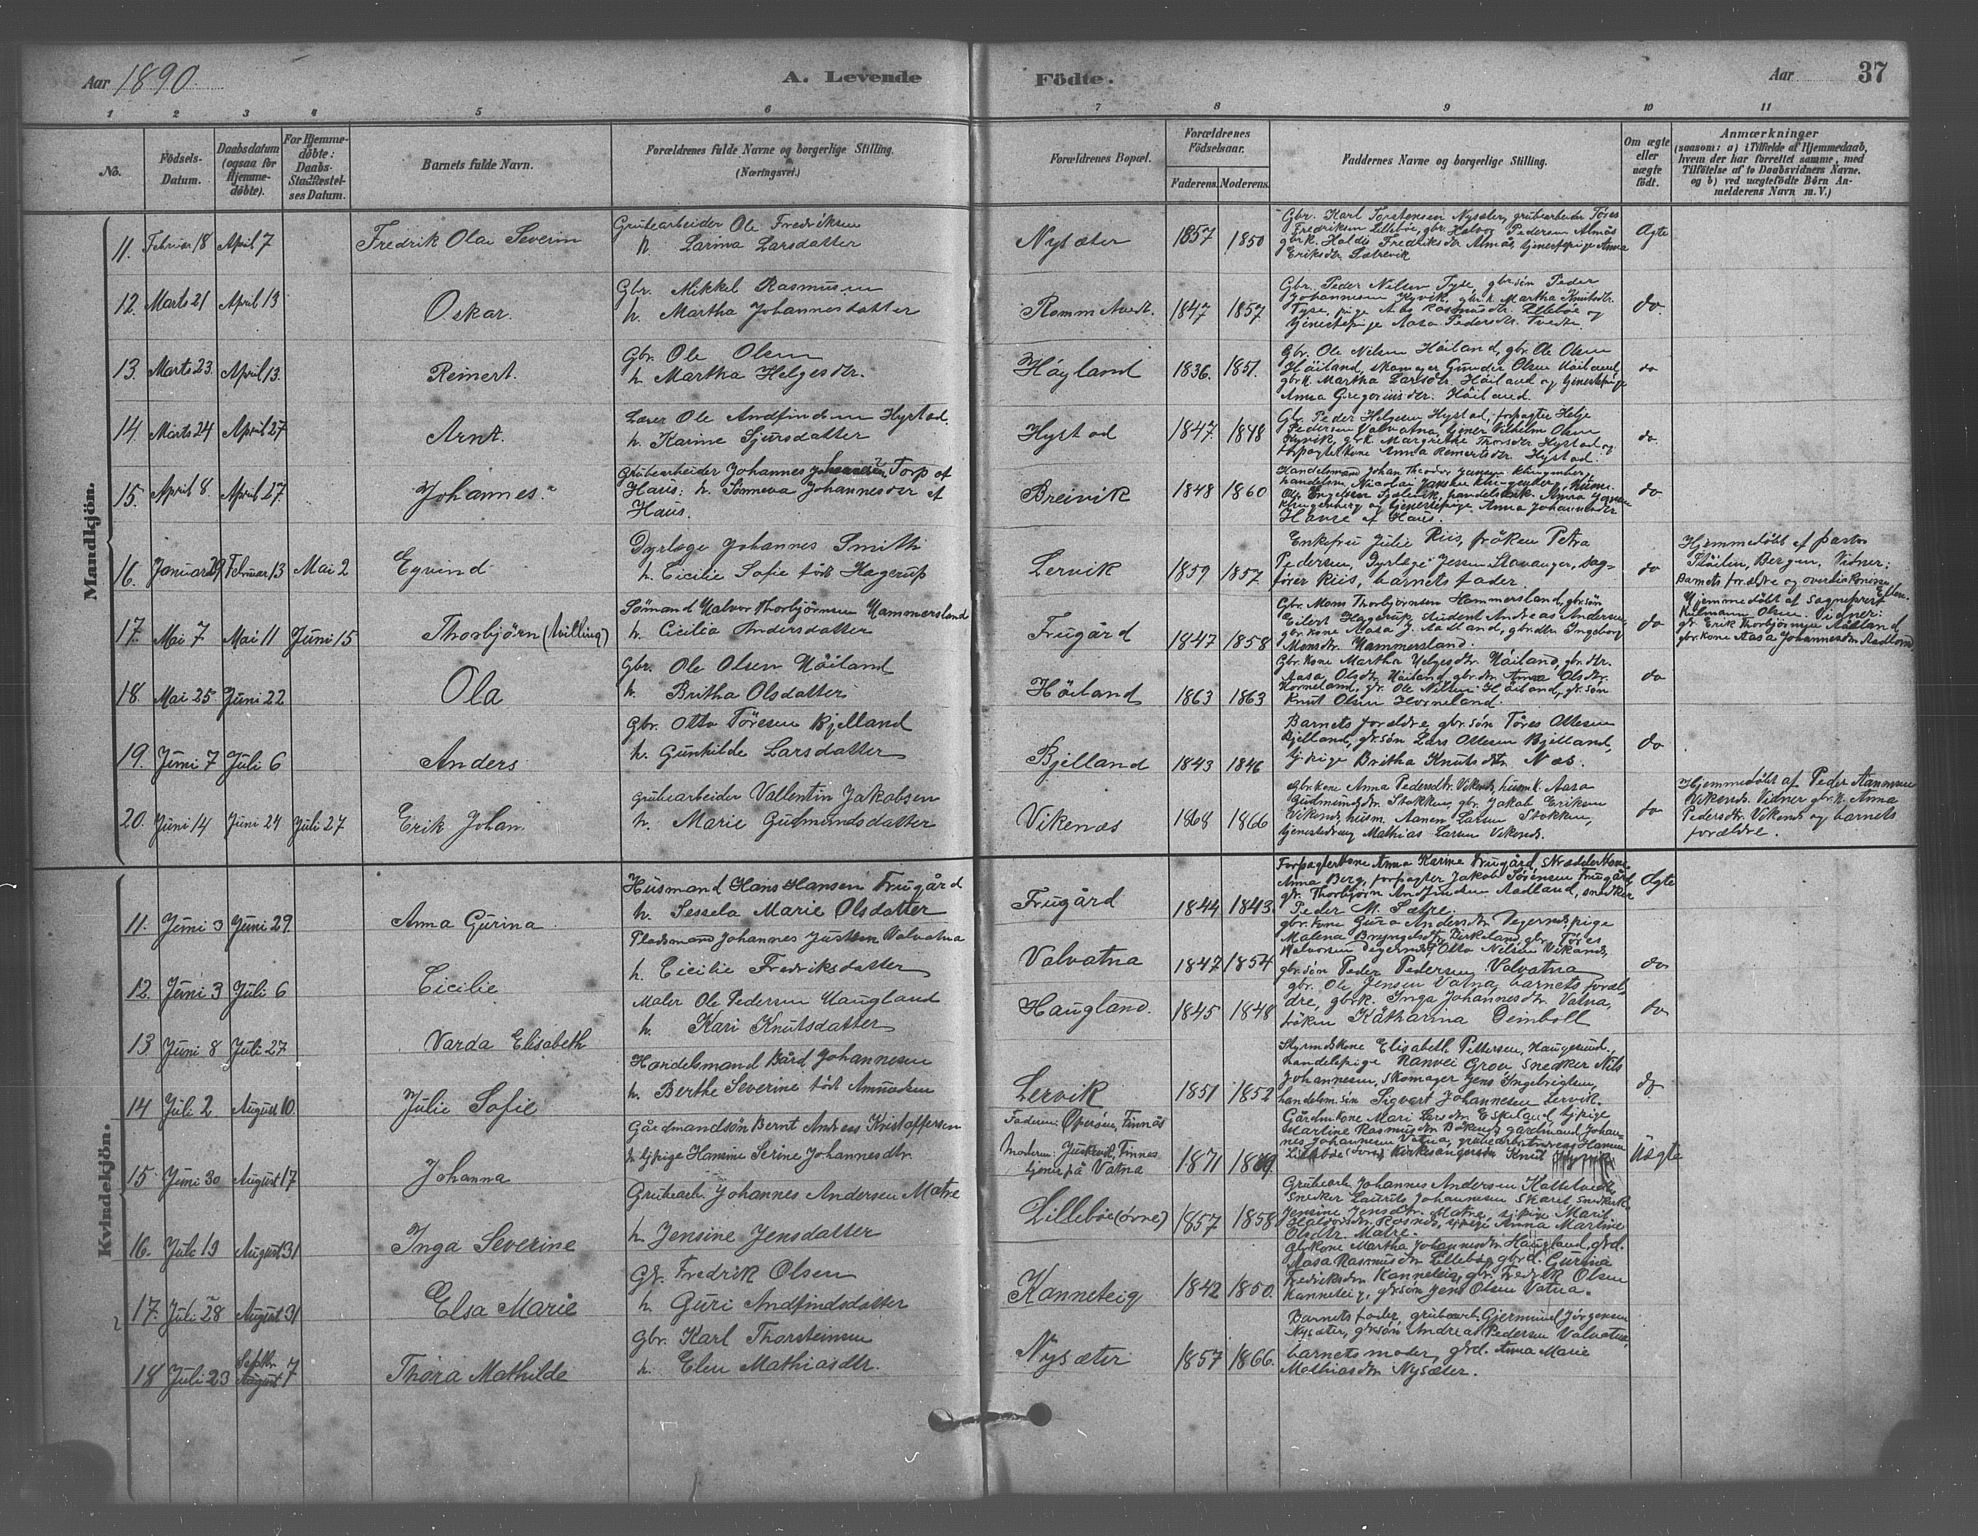 Aar 1890
A. Levende
Födte.
Aar
37
1 2 3 4 5 6 7 8 9 10 11
No.
Födsels-
Datum.
Daabsdatum
(ogsaa for
Hjemme-
döbte).
For Hjemme-
döbte:
Daabs-
Stadfæstel-
ses Datum.
Barnets fulde Navn.
Forældrenes fulde Navne og borgerlige Stilling.
(Næringsvei.)
Forældrenes Bopæl.
Forældrenes
Födselsaar.
Faderens. Moderens.
Faddernes Navne og borgerlige Stilling.
Om ægte
eller
uægte
födt.
Anmærkninger
(saasom: a) i Tilfælde af Hjemmedaab,
hvem der har forrettet samme, med
Tilföielse af to Daabsvidners Navne.
og b) ved uægtefödte Börn An-
melderens Navn m. V.)
Mandkjön.
11. Februar 18 April 7
Fredrik Olai Severin
Grubearbeider Ole Fredriksen
h. Larina Larsdatter
Nysæter
1857 1850
Gbr. Karl Torstensen Nysæter, grubearbeider Töres
Fredriksen Lillebö, gbr. Halvor Pedersen Almås
gbrk. Fredriksdtr. Almås, tjenestepige Anna
Eriksdtr. Sætrevik
Ægte
12. Marts 21 April 13
Oskar.
Gbr. Mikkel Rasmusen
h. Martha Johannesdatter
Rommetvedt.
1847 1857.
Gbr. Peder Nilsen Tyse, gbr.sön Peder
Johannesen Hyvik, gbr.k. Martha Knutsdtr.
Tyse, pige Rasmusdtr. Lillebö og
tjenestepige Aasa Pedersdtr. Tvedte.
do.
13. Marts 23. April 13.
Reinert.
Gbr. Ole Olsen
h. Martha Helgesdtr.
Höyland
1836. 1851.
Gbr. Ole Nilsen Höiland, gbr. Ole Olsen
Höiland, skomager Gunder Olsen Höiland,
gbrk. Martha Larsdtr. Höiland og tjenestepige
Anna Gregoriusdtr. Höiland.
do
14. Marts 24 April 27
Arnt.
Lærer Ole Andfindsen Hystad.
h. Karine Sjursdatter
Hystad
1847. 1848
Gbr. Peder Helgesen Hystad, forpagter Helje
Pedersen Valvatna, tjener Vilhelm Olsen
Hyvik, gbrk. Margrethe Thoresdtr. Hystad og
forpagterkone Anna Reinertsdtr. Hystad.
do
15. April 8. April 27
Johannes.
Grubearbeider Johannes Johannesen Torp af
Haus: h. Sönneva Johannesdtr af
Haus.
Breivik
1848 1860
Handelsmand Johan Theodor Jansen Klingenberg,
handelsm. Nicolai Jansen Klingenberg, husm.
Ole Engelsen Sætrevik, handelsmk. Anna Jansen
Klingenberg og tjenestepige Anna Johannesdtr
Hauge af Haus.
do
16. Januar 29 Februar 13 Mai 2
Eyvind
Dyrlæge Johannes Smith
h. Cicilie Sofie född Hagerup
Lervik
1859. 1857.
Enkefru Julie Riis, fröken Petra
Pedersen, Dyrlæge Jessen Stavanger, Sag-
förer Riis, barnets fader.
do
Hjemmedöbt af pastor
Bergen. Vidner:
Barnets forældre og overdiakonisse
17. Mai 7 Mai 11 Juni 15
Thorbjörn (tvilling)
Sömand Halvor Thorbjörnsen Hammersland
h. Cicilia Andersdatter
Frugård
1847 1858
Gbr. Mons Thorbjörnsen Hammersland, gbr.sön
Eilert Hagerup, student Andreas Andersen
gbr.kone Aasa J. Aadland, gbr.dtr Ingeborg
Monsdtr. Hammersland.
do
Hjemmedöbt af Sogneprest
Kielmann Olsen. Vidner:
gbr. Erik Thorbjörnsen Aadland,
gbr.kone Aasa Johannesdtr Aadland
18. Mai 25 Juni 22
Ola
Gbr. Ole Olsen Höiland
h. Britha Olsdatter
Höiland
1863 1863
Gbr.kone Martha Helgesdtr. Höiland, gbr.dtr.
Aasa Olsdtr. Höiland, gbr.dtr. Anna Olsdtr.
Horneland, gbr. Ole Nilsen Höiland, gbr.sön
Knut Olsen Horneland.
do
19. Juni 7 Juli 6
Anders
Gbr. Otto Töresen Bjelland
h. Gunhilde Larsdatter
Bjelland
1843 1846
Barnets forældre, gbr.sön Töres Ottesen
Bjelland, gbr.sön Lars Ottesen Bjelland,
tj. pige Britha Knutsdtr. Næs.
do
20. Juni 14 Juni 24 Juli 27
Erik Johan.
Grubearbeider Vallentin Jakobsen
h. Marie Gudmundsdatter
Vikenæs
1868 1866
Gbrkone Anna Pedersdtr. Vikenæs, husmk. Aasa
Gudmundsdtr. Stokken, gbr. Jakob Eriksen
Vikenæs, husm. Aanen Larsen Stokken,
tjenestedreng Mathias Larsen Vikenæs.
do
Hjemmedöbt af Peder Aamundsen
Vikenæs. Vidner gbr.k. Anna
Pedersdtr. Vikenæs og barnets
forældre.
Kvindekjön.
11. Juni 3 Juni 29.
Anna Gurina
Husmand Hans Hansen Frugård
h. Sessela Marie Olsdatter
Frugård
1844 1843.
Forpagterkone Anna Karine Frugård, Skrædderkone
Anna Berg, forpagter Jakob Sörensen Frugård,
gbr. Thorbjörn Andfindsen Aadland, snedker
Peder M. Sætre.
Ægte
12. Juni 3 Juli 6
Cicilie
Pladsmand Johannes Justsen Valvatna
h. Cicilie Fredriksdatter
Valvatna
1847 1854
gbr.kone Guro Andersdtr. Degernes, pige
Malena Bryngelsdtr. Birkeland, gbr. Töres
Halvorsen Degernes, Otto Nilsen Vikanes,
gbr.sön Peder Pedersen Valvatna
do
13 Juni 8 Juli 27
Varda Elisabeth
Maler Ole Pedersen Haugland
h. Kari Knutsdatter
Haugland.
1845 1848
gbr. Ole Jensen Vatna, barnets foræl-
dre, gbrk. Inga Johannesdtr. Vatna,
fröken Katharina Deinboll
do
14 Juli 2 August 10.
Julie Sofie
Handelsmand Bård Johannesen
h. Berthe Severine född Amundsen
Lervik
1851 1852
Styrmdskone Elisabeth Pettersen, Haugesund,
handelspige Ranvei Groa, snedker Nils
Johannesen, Skomager Jens Ingebrigtsen,
handelsm.sön Sigvart Johannesen Lervik.
do
15 Juni 30 August 17
Johanna
Gårdmandsön Bernt Andreas Kristoffersen
og tj.pige Hansine Serine Johannesdtr.
Faderen: Finnås
Moderen: Finnes
tjener på Vatna
1871 1869
Gårdm.kone Mari Larsdtr. Eskeland, tj.pige
Martine Rasmusdtr. gårdmand Johan-
nes Johannesen Vatna, grubearb. Andreas Hansen
Lillebö (övre), Kirkesanger Knut
Uægte
16. Juli 13 August 31
Inga Severine
Grubearb. Johannes Andersen Matre
h. Jensine Jensdatter
Lillebö (övre)
1857. 1858
Grubearb. Johannes Andersen
snedker Laurits Johannesen Skaret, snedkerk.
Jensine Jensdtr. Matre, tj. pige Marit
Halvorsdtr. tj.pige Anna Martine
Olsdtr. Matre.
17. Juli 28 August 31
Elsa Marie
Gbr. Fredrik Olsen
h. Guri Andfindsdatter
Kanneteig
1842 1850.
Gbrkone Martha Johannesdtr Haugland, gbrd.
Aasa Rasmusdtr Lillebö, gbrd. Gurina
Fredriksdtr Kanneteig, gbr. Fredrik Olsen
Kanneteig, gbrsön Jens Olsen Vatna.
18 Juli 23 Septbr. August 7
Thora Mathilde
Gbr. Karl Thorsteinsen
h. Elen Mathiasdtr.
Nysæter
1857 1866.
Barnets fader, grubearb. Gjermund Jörgensen
Nysæter, gbrsön Andreas Pedersen Valvatna,
barnets moder, gbrd. Anna Marie
Mathiasdtr Nysæter.